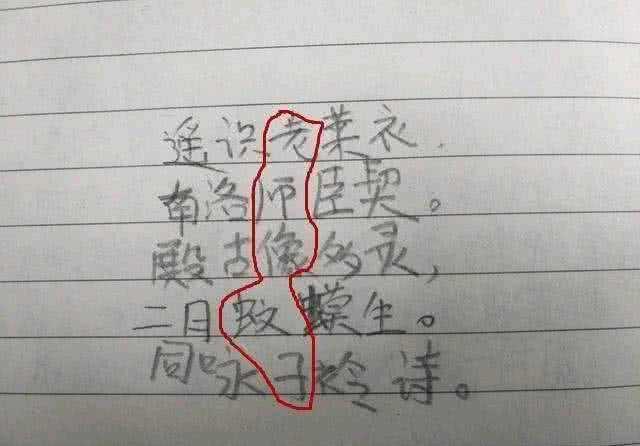 遥识老莱衣.
南洛师臣契。
殿古像多灵,
二月蚊蟆生。
同咏子衿诗。